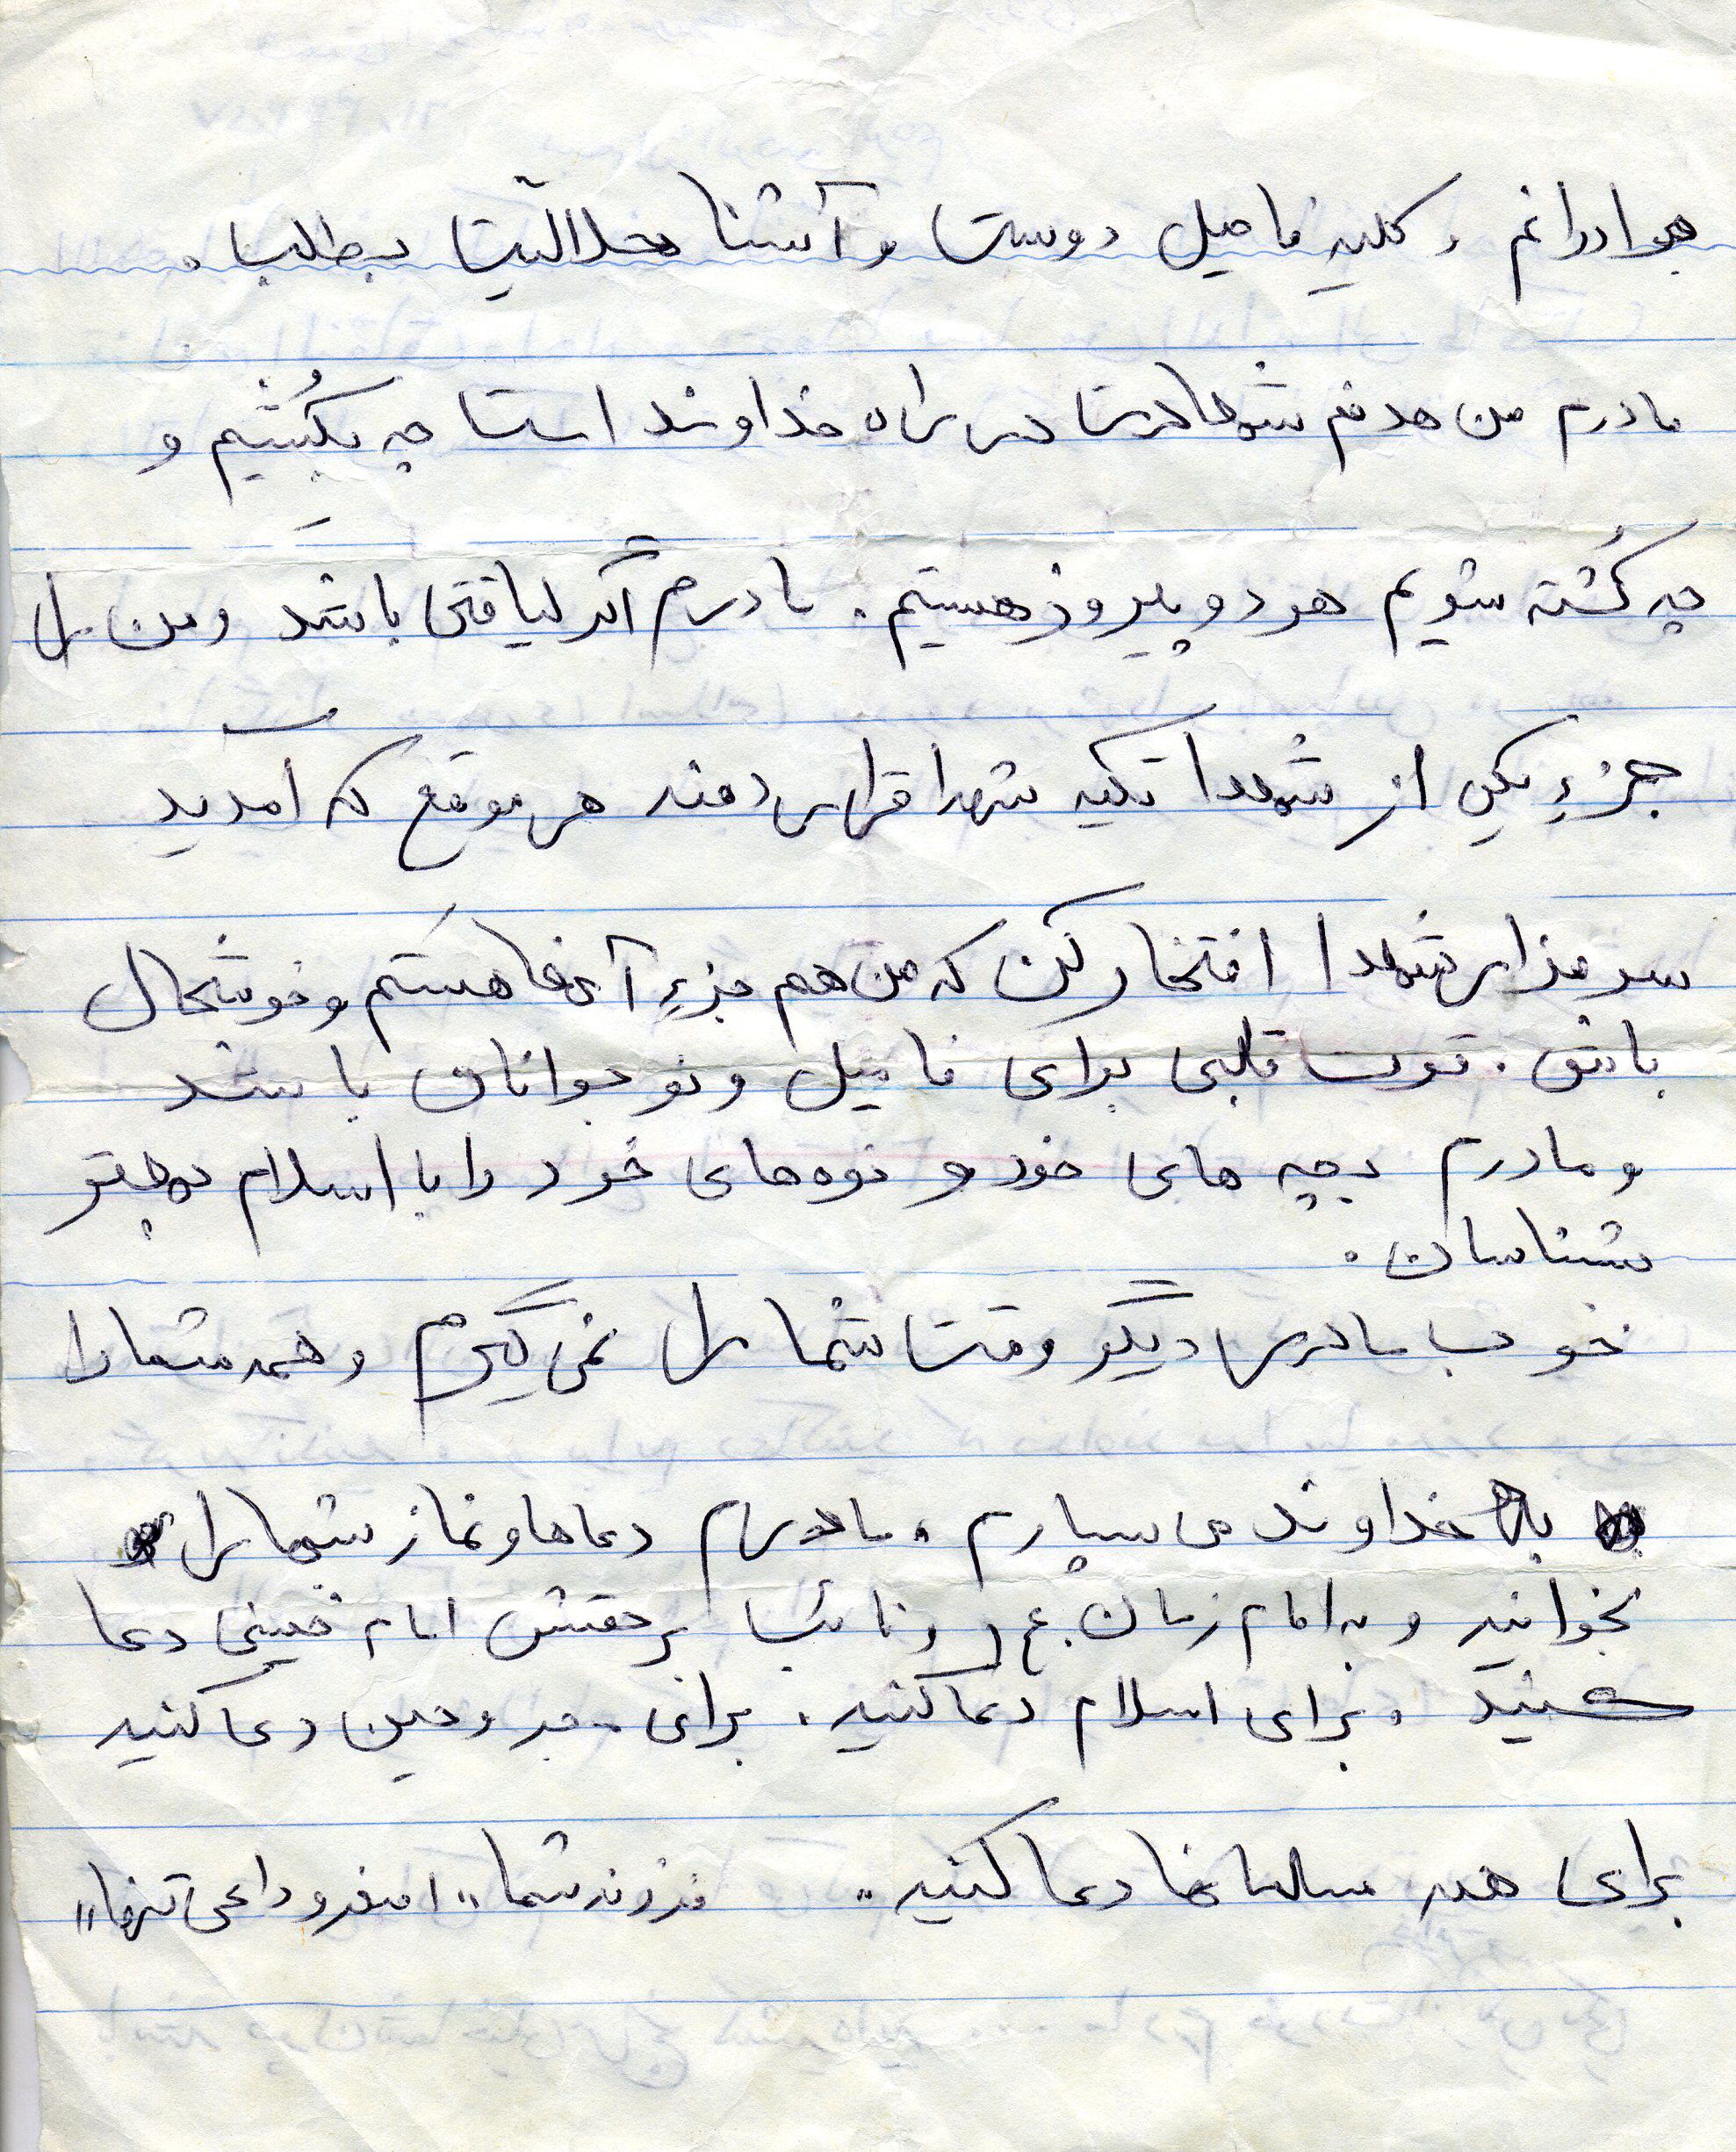 برادرانم و کلیه فامیل دوست و آشنا حلالیت بطلب.
مادرم من هدفم شهادت در راه خداوند است چه بکُشیم و
چه کُشته شویم هر دو پیروز هستیم. مادرم اگر لیاقتی باشد و من را
جزءِ یکی از شهدا تکیه شهدا قرار دهند هر موقع که آمدید
سر مزار شهدا افتخار کن که من هم جزءِ آنها هستم و خوشحال
باش. قوت قلبی برای فامیل و نوجوانان باشد
و مادرم بچه های خود و نوه های خود را با اسلام بهتر
شناسان.
خوب مادر دیگر وقت شما را نمی گیرم و همه شما را
به خداوند می سپارم، مادرم دعاها و نماز شبها را
بخوانید و به امام زمان (عج) و نائب بر حقش امام خمینی دعا
کنید، برای اسلام دعا کنید. برای مجروحین دعا کنید
برای همه مسلمانها دعا کنید.. فرزند شما "اصغر وداعی تنها"